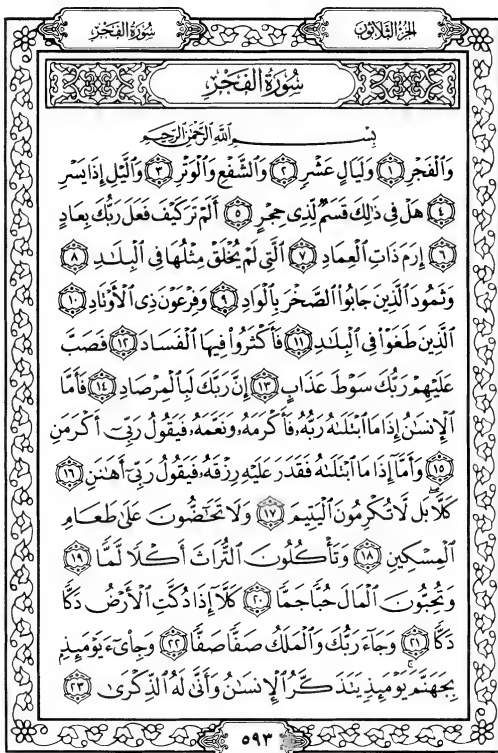 سُورَةُ الفَجْرِ
الجُزْءُ الثَّلَاثُونَ
سُورَةُ الفَجْرِ
بِسْمِ اللَّهِ الرَّحْمَٰنِ الرَّحِيمِ
وَالْفَجْرِ ١ وَلَيَالٍ عَشْرٍ ٢ وَالشَّفْعِ وَالْوَتْرِ ٣ وَالَّيْلِ إِذَا يَسْرِ
٤ هَلْ فِى ذَٰلِكَ قَسَمٌ لِّذِى حِجْرٍ ٥ أَلَمْ تَرَ كَيْفَ فَعَلَ رَبُّكَ بِعَادٍ
٦ إِرَمَ ذَاتِ الْعِمَادِ ٧ الَّتِى لَمْ يُخْلَقْ مِثْلُهَا فِى الْبِلَٰدِ ٨
وَثَمُودَ الَّذِينَ جَابُوا۟ الصَّخْرَ بِالْوَادِ ٩ وَفِرْعَوْنَ ذِى الْأَوْتَادِ ١٠
الَّذِينَ طَغَوْا۟ فِى الْبِلَٰدِ ١١ فَأَكْثَرُوا۟ فِيهَا الْفَسَادَ ١٢ فَصَبَّ
عَلَيْهِمْ رَبُّكَ سَوْطَ عَذَابٍ ١٣ إِنَّ رَبَّكَ لَبِالْمِرْصَادِ ١٤ فَأَمَّا
الْإِنسَٰنُ إِذَا مَا ابْتَلَىٰهُ رَبُّهُۥ فَأَكْرَمَهُۥ وَنَعَّمَهُۥ فَيَقُولُ رَبِّىٓ أَكْرَمَنِ
١٥ وَأَمَّآ إِذَا مَا ابْتَلَىٰهُ فَقَدَرَ عَلَيْهِ رِزْقَهُۥ فَيَقُولُ رَبِّىٓ أَهَٰنَنِ ١٦
كَلَّا ۖ بَل لَّا تُكْرِمُونَ الْيَتِيمَ ١٧ وَلَا تَحَٰٓضُّونَ عَلَىٰ طَعَامِ
الْمِسْكِينِ ١٨ وَتَأْكُلُونَ التُّرَاثَ أَكْلًا لَّمًّا ١٩
وَتُحِبُّونَ الْمَالَ حُبًّا جَمًّا ٢٠ كَلَّآ إِذَا دُكَّتِ الْأَرْضُ دَكًّا
دَكًّا ٢١ وَجَآءَ رَبُّكَ وَالْمَلَكُ صَفًّا صَفًّا ٢٢ وَجِا۟ىٓءَ يَوْمَئِذٍ
بِجَهَنَّمَ ۚ يَوْمَئِذٍ يَتَذَكَّرُ الْإِنسَٰنُ وَأَنَّىٰ لَهُ الذِّكْرَىٰ ٢٣
٥٩٣